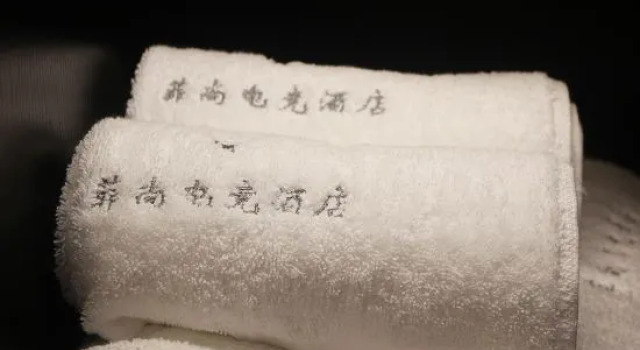 菲尚电竞酒店
菲尚电竞酒店